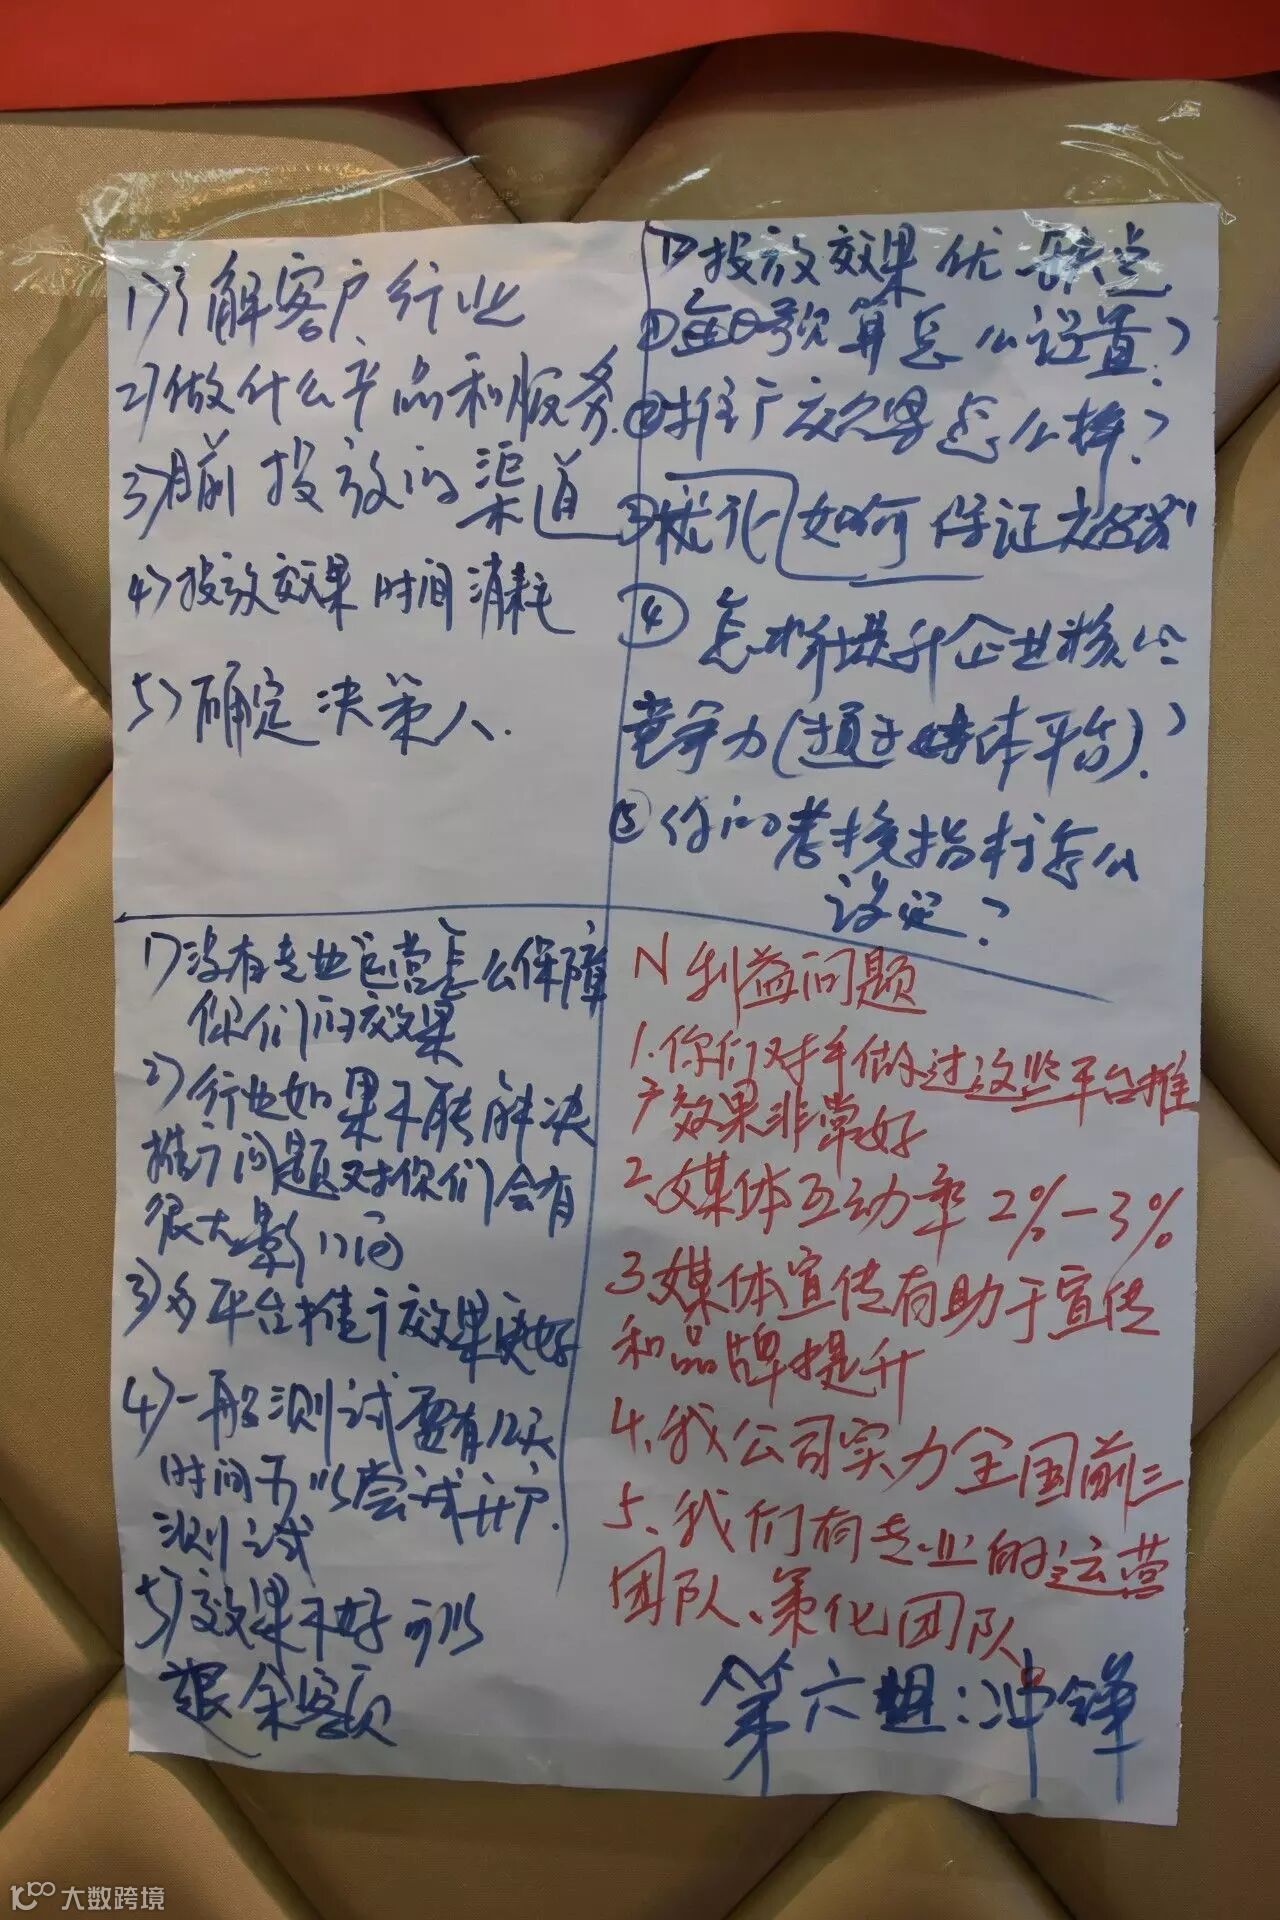 1)了解客户行业
2)做什么产品和服务.
3)目前投放的渠道
4)投放效果 时间消耗
5)确定决策人.
P投放效果优缺点
①每日预算怎么设置?
②推广效果怎么样?
③优化 如何保证
④怎样提升企业核心
竞争力(通过媒体平台)?
⑤你的考核指标怎么
设定?
1)没有专业运营怎么保障
你们的效果
2)行业如果不能解决
推广问题对你们会有
很大影响
3)多平台推广效果更好
4)一般测试需有12天
时间可以尝试开户.
测试
5)效果不好可以
退余额
N利益问题
1.你们对手做过这些平台推
广效果非常好
2、媒体互动率2%-3%
3.媒体宣传有助于宣传
和品牌提升
4.我公司实力全国前三
5、我们有专业的运营
团队、策化团队
第六组:冲锋
大数跨境